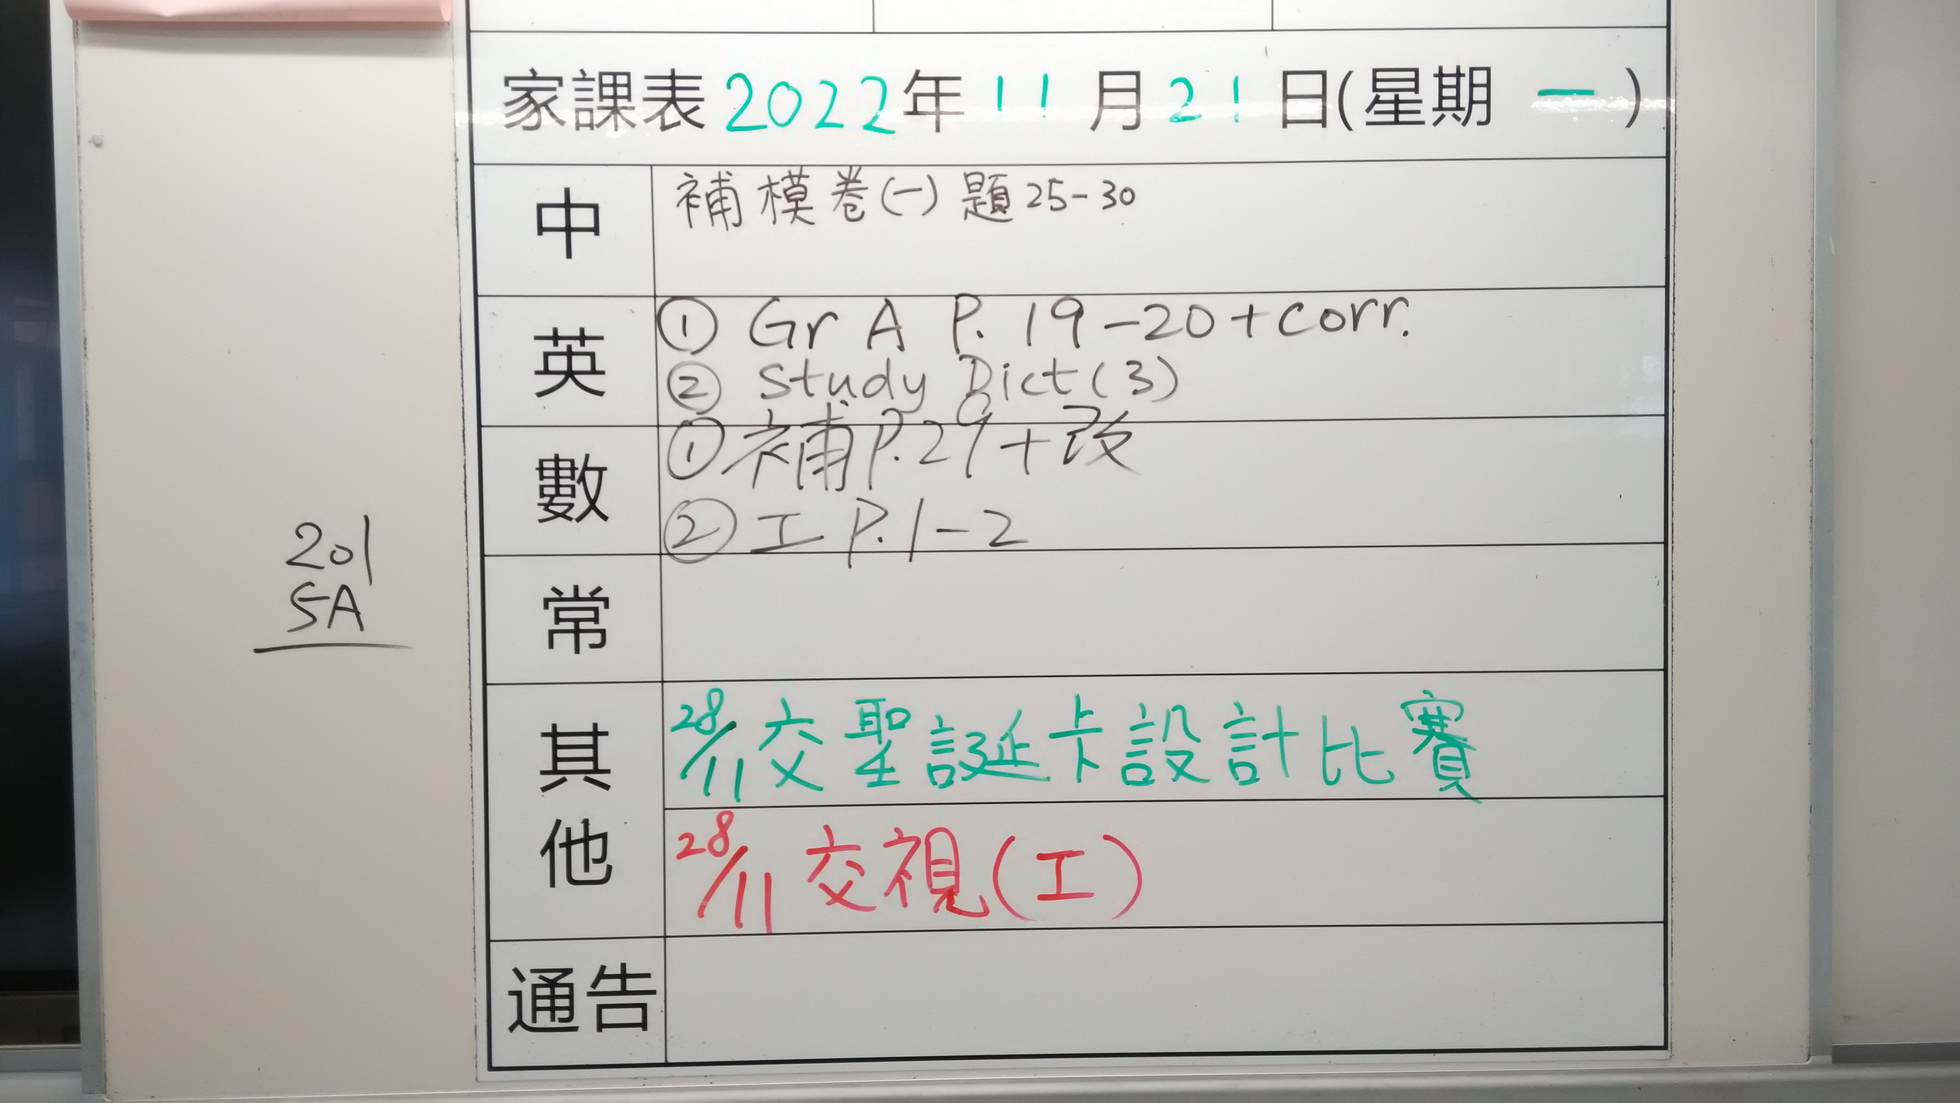 家課表2022年11月21日(星期一)
中
補模卷(一)題25-30
英
① Gr A P. 19-20+corr.
② Study Dict(3)
數
①補P.29+改
②工P.1-2
常
其他
28/11交聖誕卡設計比賽
28/11交視(工)
通告
201
5A